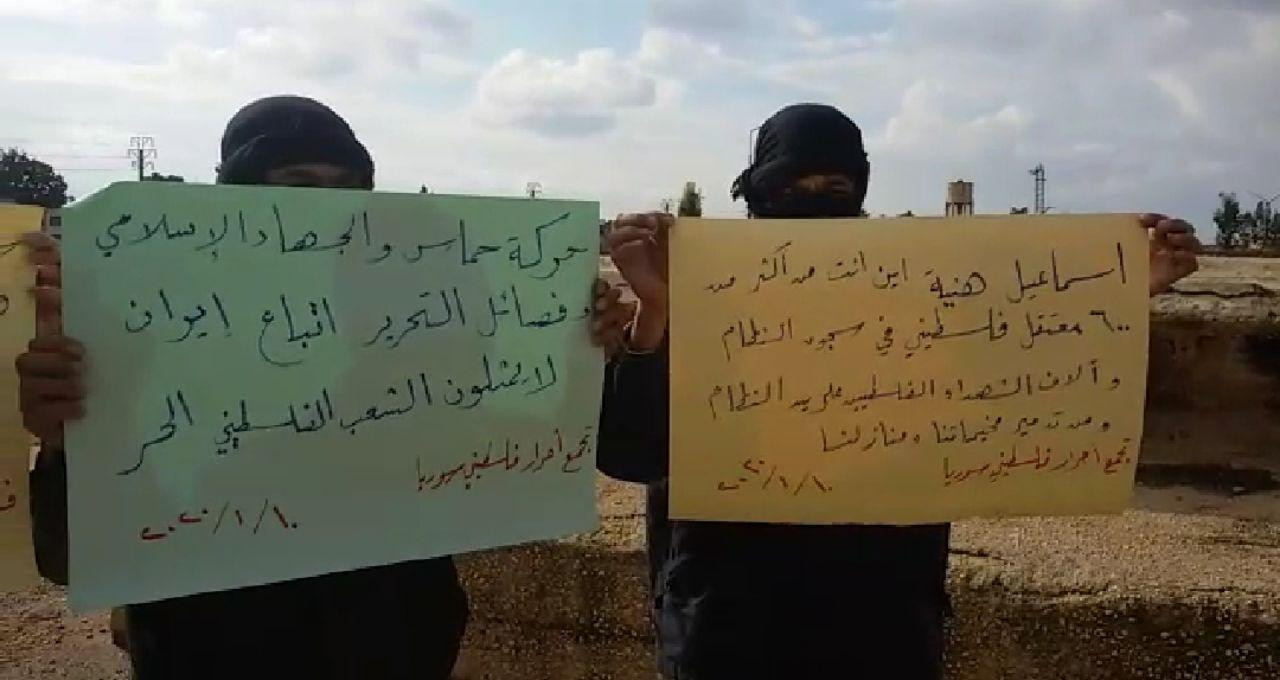 حركة حماس والجهاد الإسلامي
وفصائل التحرير اتباع إيران
لا يمثلون الشعب الفلسطيني الحر
تجمع أحرار فلسطيني سوريا
٢٠٢٠/١/١٠
اسماعيل هنية اين انت من أكثر من
٦٠٠ معتقل فلسطيني في سجون النظام
و آلاف الشهداء الفلسطينين على يد النظام
و من تدمير مخيماتنا ومنازلنا
تجمع أحرار فلسطيني سوريا
٢٠٢٠/١/١٠